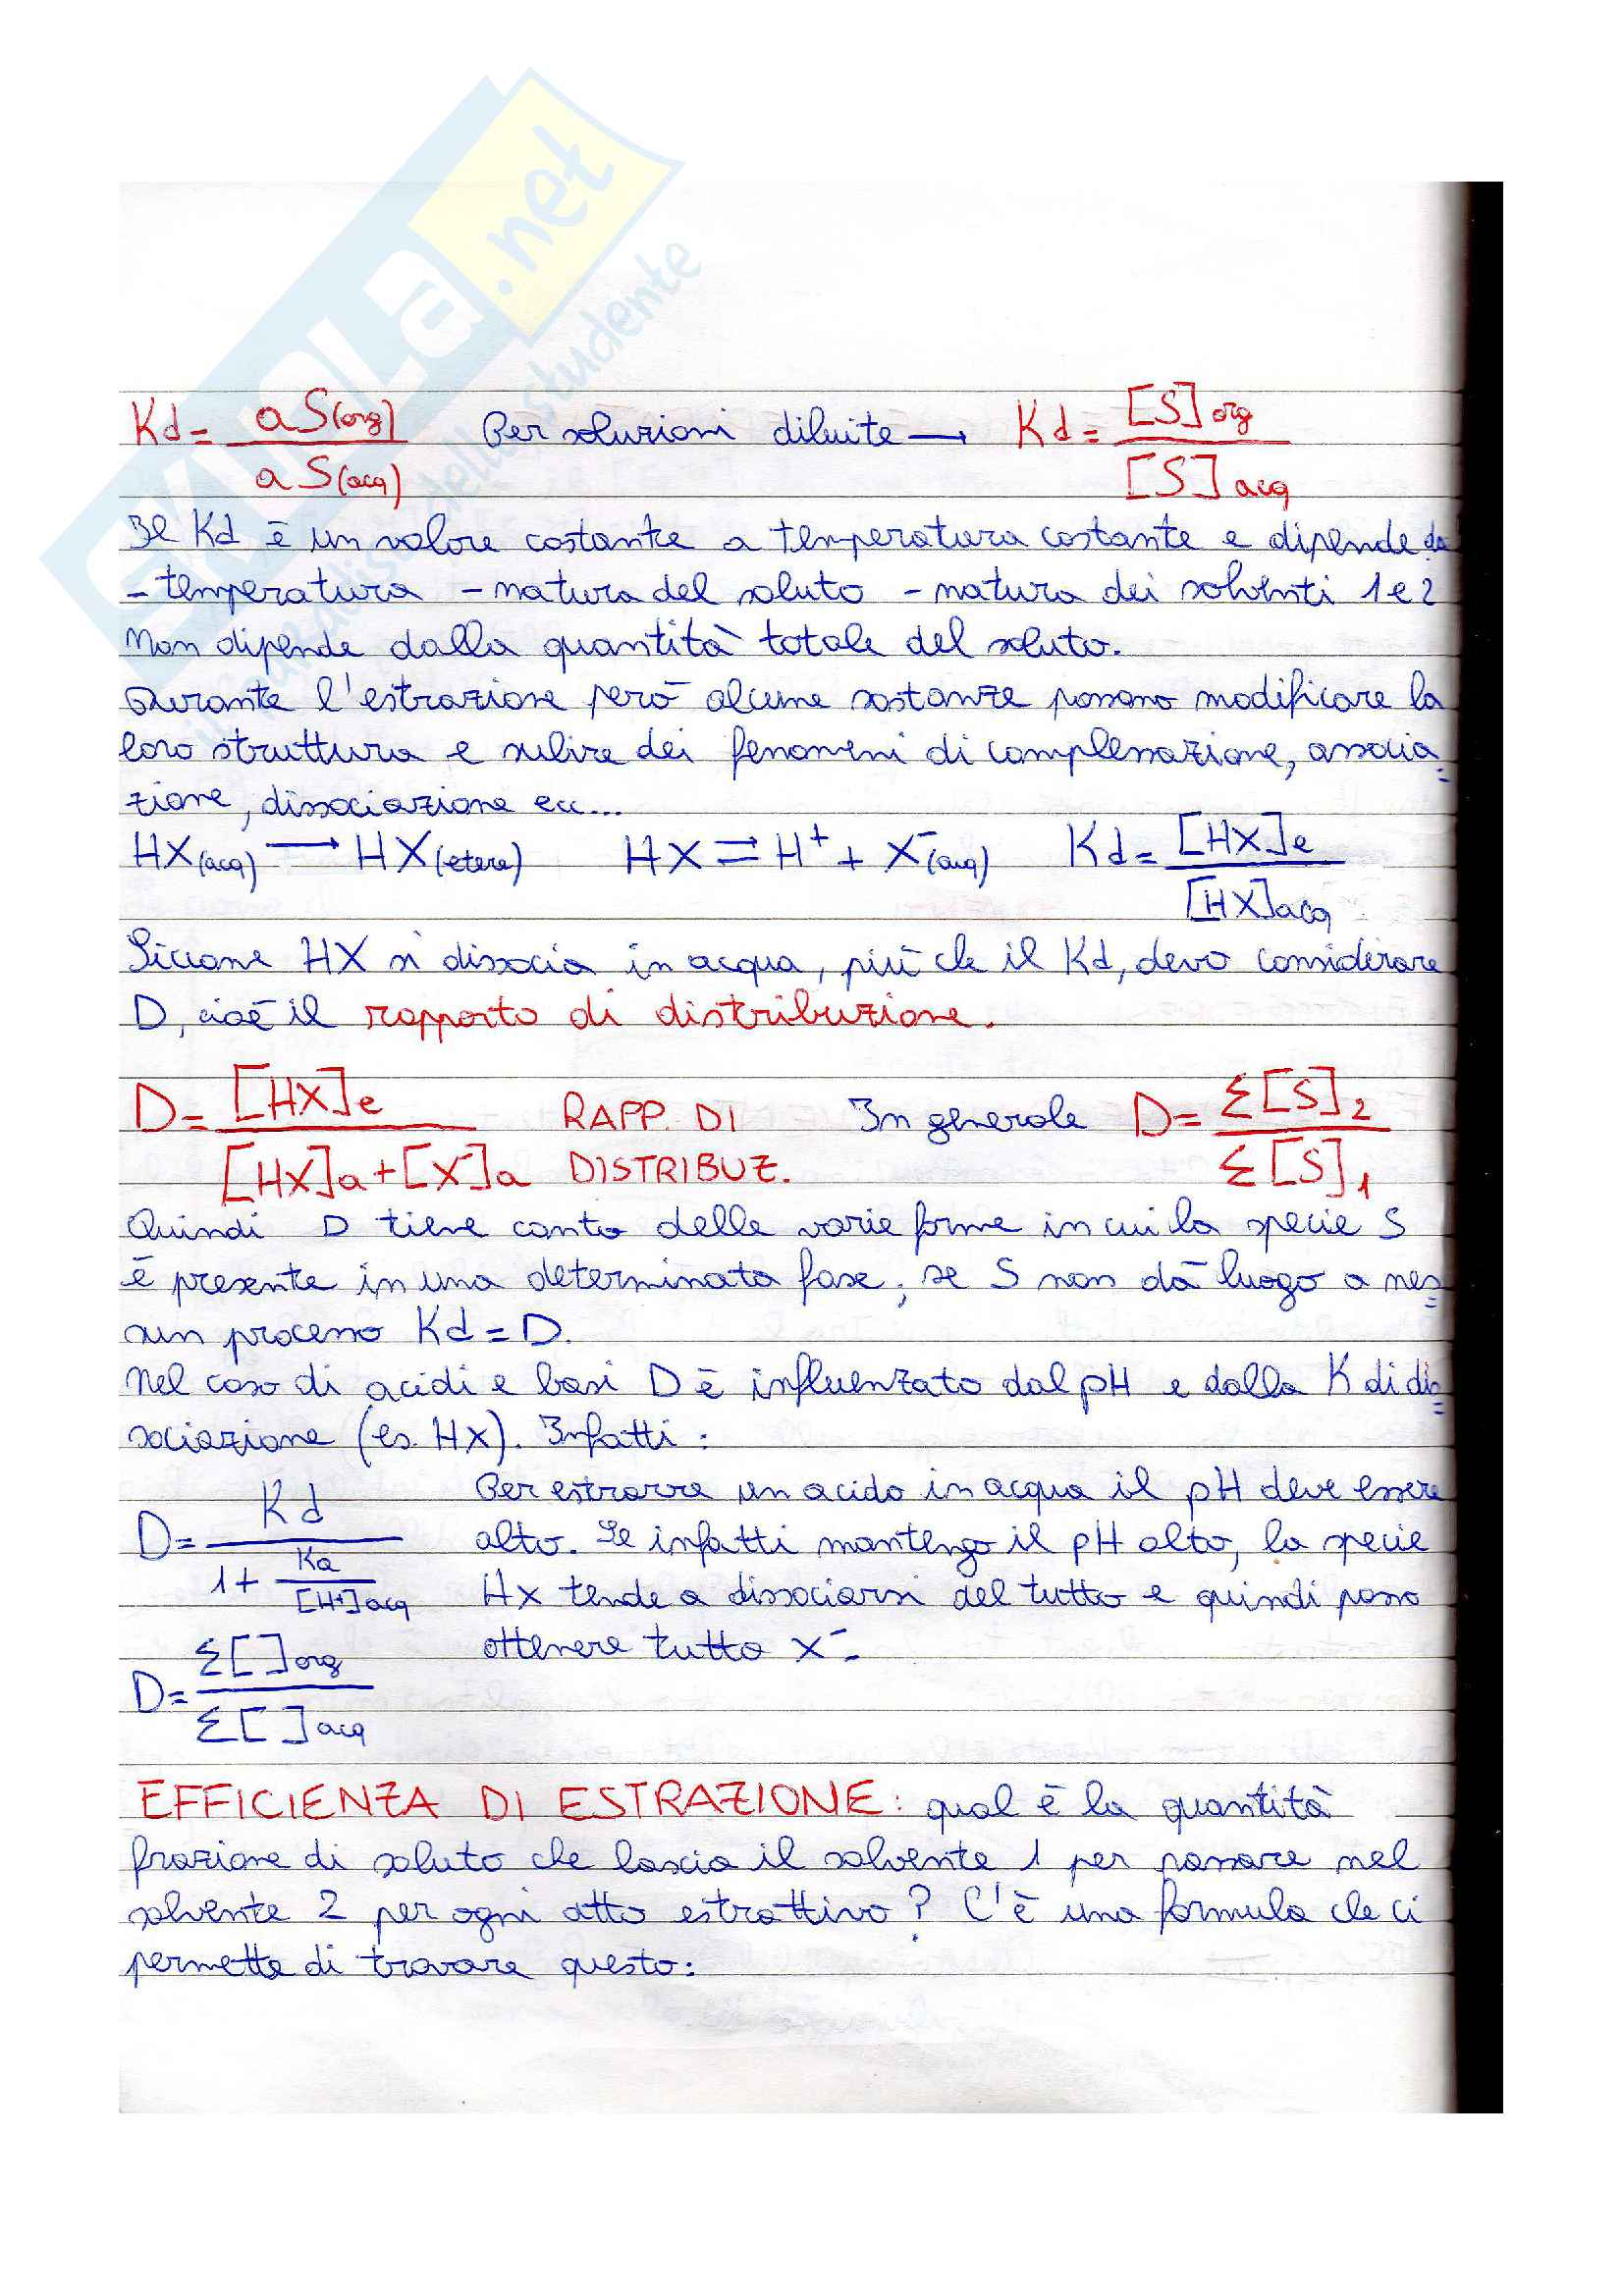 SKUOLA.net
Kd = aS(org) / aS(acq) Per soluzioni diluite → Kd = [S]org / [S]acq
Il Kd è un valore costante a temperatura costante e dipende da
- temperatura - natura del soluto - natura dei solventi 1 e 2
Non dipende dalla quantità totale del soluto.
Durante l'estrazione però alcune sostanze possono modificare la
loro struttura e subire dei fenomeni di complessazione, associa=
zione, dissociazione ecc...
HX(acq) → HX(etere) HX ⇌ H⁺ + X⁻(acq) Kd = [HX]e / [HX]acq
Siccome HX si dissocia in acqua, più che il Kd, devo considerare
D, cioè il rapporto di distribuzione.
D = [HX]e / [HX]a + [X⁻]a RAPP. DI DISTRIBUZ. In generale D = Σ[S]2 / Σ[S]1
Quindi D tiene conto delle varie forme in cui la specie S
è presente in una determinata fase; se S non dà luogo a nes=
sun processo Kd = D.
Nel caso di acidi e basi D è influenzato dal pH e dalla K di dis=
sociazione (es. HX). Infatti:
D = Kd / 1 + Ka / [H⁺]acq
Per estrarre un acido in acqua il pH deve essere
alto. Se infatti mantengo il pH alto, la specie
HX tende a dissociarsi del tutto e quindi posso
ottenere tutto X⁻.
D = Σ[ ]org / Σ[ ]acq
EFFICIENZA DI ESTRAZIONE: qual è la quantità
frazione di soluto che lascia il solvente 1 per passare nel
solvente 2 per ogni atto estrattivo? C'è una formula che ci
permette di trovare questo: